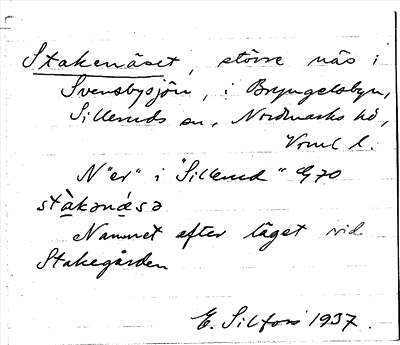 Stakenäset, större näs i
Svensbysjön, i Bryngelsbyn,
Silleruds sn, Nordmarks hd,
Vrml l.
N "er" i "Sillerud" G70
stàkənǽsə
Namnet efter läget vid
Stakegården
E. Silfors 1937.